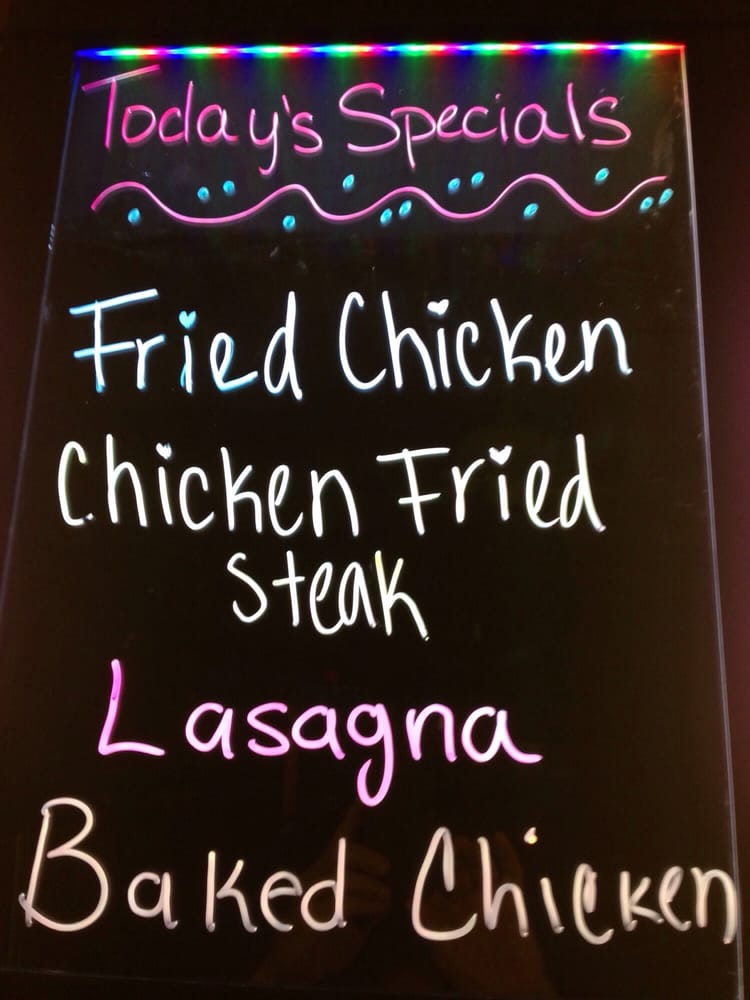 Today's Specials
Fried Chicken
Chicken Fried
Steak
Lasagna
Baked Chicken